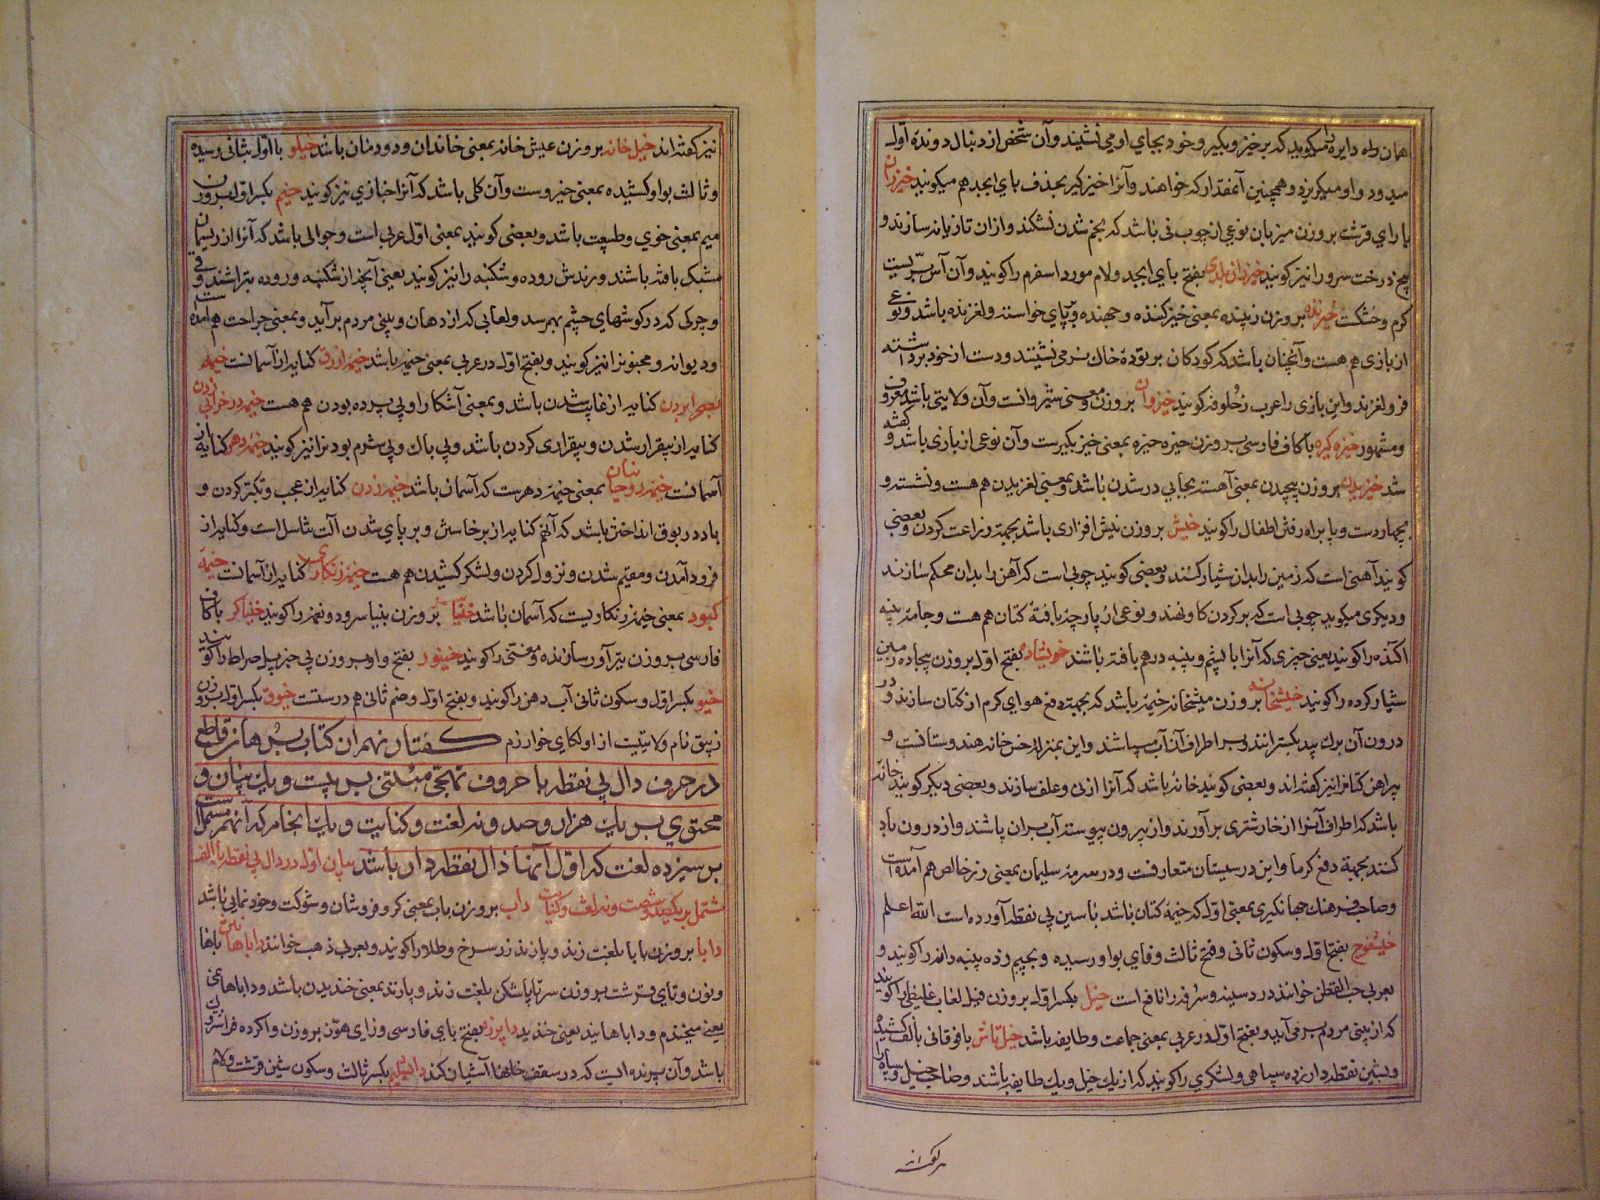 همان وله دایره میکوید که برخیز و بکیر و خود بجای او می نشیند و آن شخص از دنبال دونده اول
میدود و او میکریزد و همچنین آنمقدار که خواهند و آنرا خیز کیر بحذف بای ابجد هم میکویند خیزران
با رای قرشت بر وزن میزبان نوعی از چوب نی باشد که بخم شدن نشکند و از ان تازیانه سازند و
بیخ درخت سرو را نیز کویند خیزران بلدی بفتح بای ابجد ولام مورد اسفرم را کویند و آن آس بریست
کرم و خشکت خیزنده بر وزن زیبنده بمعنی خیز کننده و جهنده و بر پای خواسته و لغزنده باشد و نوعی
از بازی هم هست و آنچنان باشد که کودکان بر توده خاك نرم نشینند و دست از خود برداشته
فرو لغزند و این بازی را عرب زحلوفه کویند خیزوان بر وزن و معنی شیروانت و آن ولایتی باشد معروف
و مشهور خیزه کیره با کاف فارسی بر وزن حیزه حیزه بمعنی خیز بکیرست و آن نوعی از بازی باشد و کفته
شد خیزیدن بر وزن پیچیدن بمعنی آهسته بجایی در شدن باشد و بمعنی لغزیدن هم هست و نشسته و
بچهار دست و پا براه رفتن اطفال را کویند خیش بر وزن نیش افزاری باشد بجهة زراعت کردن و بعضی
کویند آهنی است که زمین را بدان شیار کنند و بعضی کویند چوبی است که آهن را بدان محکم سازند
و دیکری میکوید چوبی است که بر کردن کاو نهند و نوعی از پارچه بافته کتان هم هست و جامه پنبه
اکنده را کویند یعنی چیزی که آنرا با پشم و پنبه در هم بافته باشند بفتح اول بر وزن بیجاده زمین
شیار کرده را کویند خیشخانه بر وزن میشخانه خیمه باشد که بجهت دفع هوای کرم از کتان سازند و در
درون آن برك بید بکسترانند و بر اطراف آن آب پاشند و این بمنزله خس خانه هندوستانست و
پیراهن کتانرا نیز کفته اند و بعضی کویند خانه باشد که آنرا از نی و علف سازند و بعضی دیکر کویند خانه
باشد که اطراف آنرا از خار شتری برآورند و از بیرون پیوسته آب بران پاشند و از درون باد
کنند بجهة دفع کرما و این در سیستان متعارفت و در سرمه سلیمان بمعنی زر خالص هم آمده است
و صاحب فرهنك جهانکیری بمعنی اول که خیمه کتان باشد با سین بی نقطه آورده است الله اعلم
خیشفوج بفتح اول و سکون ثانی و فتح ثالث و فای بواو رسیده و بجیم زده پنبه دانه را کویند و
بعربی حب القطن خوانند درد سینه و سرفه را نافع است خیل بکسر اول بر وزن فیل لعاب غلیظی را کویند
که از بینی مردم برمی آید و بفتح اول در عربی بمعنی جماعت و طایفه باشد خیل تاش با فوقانی بالف کشیده
و بشین نقطه دار زده سپاهی و لشکری را کویند که از یك خیل و یك طایفه باشند و صاحب خیل و سپاه را
نیز کفته اند خیل خانه بر وزن عیش خانه بمعنی خاندان و دودمان باشد خیلو با اول بثانی رسیده
و ثالث بواو کشیده بمعنی خیروست و آن کلی باشد که آنرا خبازی نیز کویند خیم بکسر اول بر وزن
میم بمعنی خوی و طبیعت باشد و بعضی کویند بمعنی اول عربی است و جوالی باشد که آنرا از ریسمان
مشبک بافته باشند و رندش روده و شکنبه را نیز کویند یعنی آنچه از شکنبه و روده بتراشند و قی
و چرکی که در کوشهای چشم بهم رسد و لعابی که از دهان و بینی مردم برآید و بمعنی جراحت هم آمده است
و دیوانه و مجنونرا نیز کویند و بفتح اول در عربی بمعنی خیمه باشد خیمه ازرق کنایه از آسمانست خیمه
بصحرا بردن کنایه از غایب شدن باشد و بمعنی آشکارا و بی پرده بودن هم هست خیمه در خرابی زدن
کنایه از بیقرار شدن و بیقراری کردن باشد و بی باك و بی شرم بودنرا نیز کویند خیمه دهر کنایه از
آسمانست خیمه روحانیان بمعنی خیمه دهرست که آسمان باشد خیمه زدن کنایه از عجب و تکبر کردن و
باد در بوق انداختن باشد که آنهم کنایه از برخاستن و بر پای شدن آلت تناسل است و کنایه از
فرود آمدن و مقیم شدن و نزول کردن و لشکر کشیدن هم هست خیمه زنکاری کنایه از آسمانست خیمه
کبود بمعنی خیمه زنکاریست که آسمان باشد خنیا بر وزن بنیا سرود و نغمه را کویند خنیاکر با کاف
فارسی بر وزن بترآور سازنده و مغنی را کویند خینور بفتح واو بر وزن پی خبر پل صراط را کویند
خیو بکسر اول و سکون ثانی آب دهن را کویند و بفتح اول و ضم ثانی هم درستست خیوق بکسر اول بر وزن
زیبق نام ولایتیست از اولکای خوارزم کفتار نهم از کتاب برهان قاطع
در حرف دال بی نقطه با حروف تهجی مبتنی بر بیست و یك بیان و
محتوی بر یك هزار و صد و نه لغت و کنایت و یك انجام که آنهم مشتمل است
بر سیزده لغت که اول آنها ذال نقطه دار باشد بیان اول در دال بی نقطه با الف
مشتمل بر یکصد و شصت و نه لغت و کنایت داب بر وزن باب بمعنی کر و فر و شان و شوکت و خودنمایی باشد
دابا بر وزن بابا بلغت زند و پازند زر سرخ و طلا را کویند و بعربی ذهب خوانند داباهانتن باها
و نون و تای قرشت بر وزن سرتاپاشکن بلغت زند و پازند بمعنی خندیدن باشد و داباهای
یعنی میخندم و داباهایند یعنی خندید داپرزه بفتح بای فارسی و زای هوز بر وزن واکرده فراشتروك
باشد و آن پرنده ایست که در سقف خانها آشیان کند بکسر ثالث و سکون شین قرشت و لام